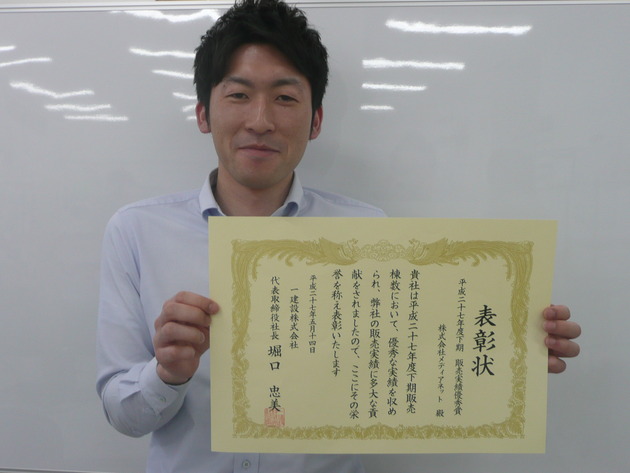 表彰状
平成二十七年度下期 販売実績優秀賞
株式会社メディアネット 殿
貴社は平成二十七年度下期販売
棟数において、優秀な実績を収め
られ、弊社の販売実績に多大な貢
献をされましたので、ここにその栄
誉を称え表彰いたします
平成二十七年五月十四日
一建設株式会社
代表取締役社長 堀口 忠美